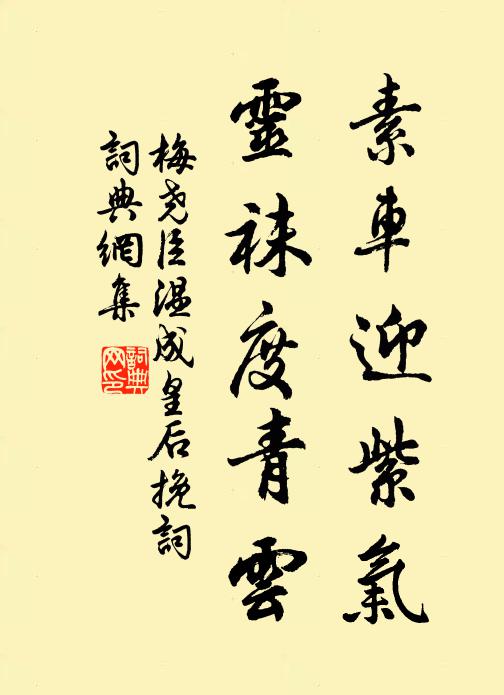 素車迎紫氣
靈袜度青雲
梅堯臣溫成皇后挽詞
詞典網集
詞典网印